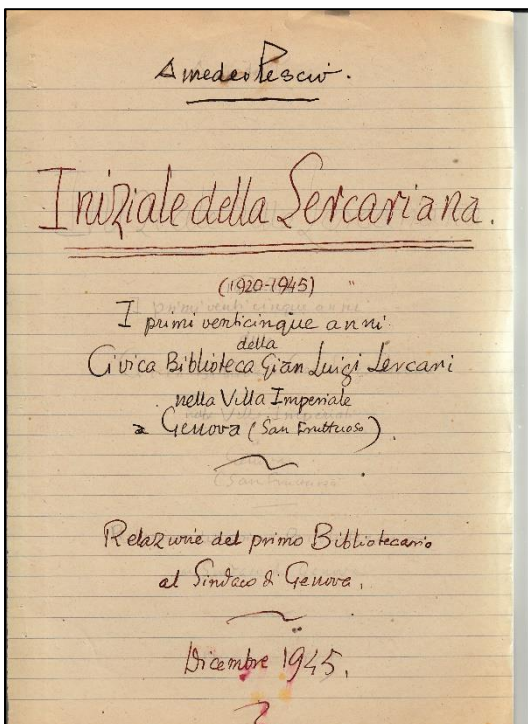 Amedeo Pescio.
Iniziale della Lercariana.
(1920-1945)
I primi venticinque anni
della
Civica Biblioteca Gian Luigi Lercari
nella Villa Imperiale
a Genova (San Fruttuoso).
Relazione del primo Bibliotecario
al Sindaco di Genova.
Dicembre 1945.